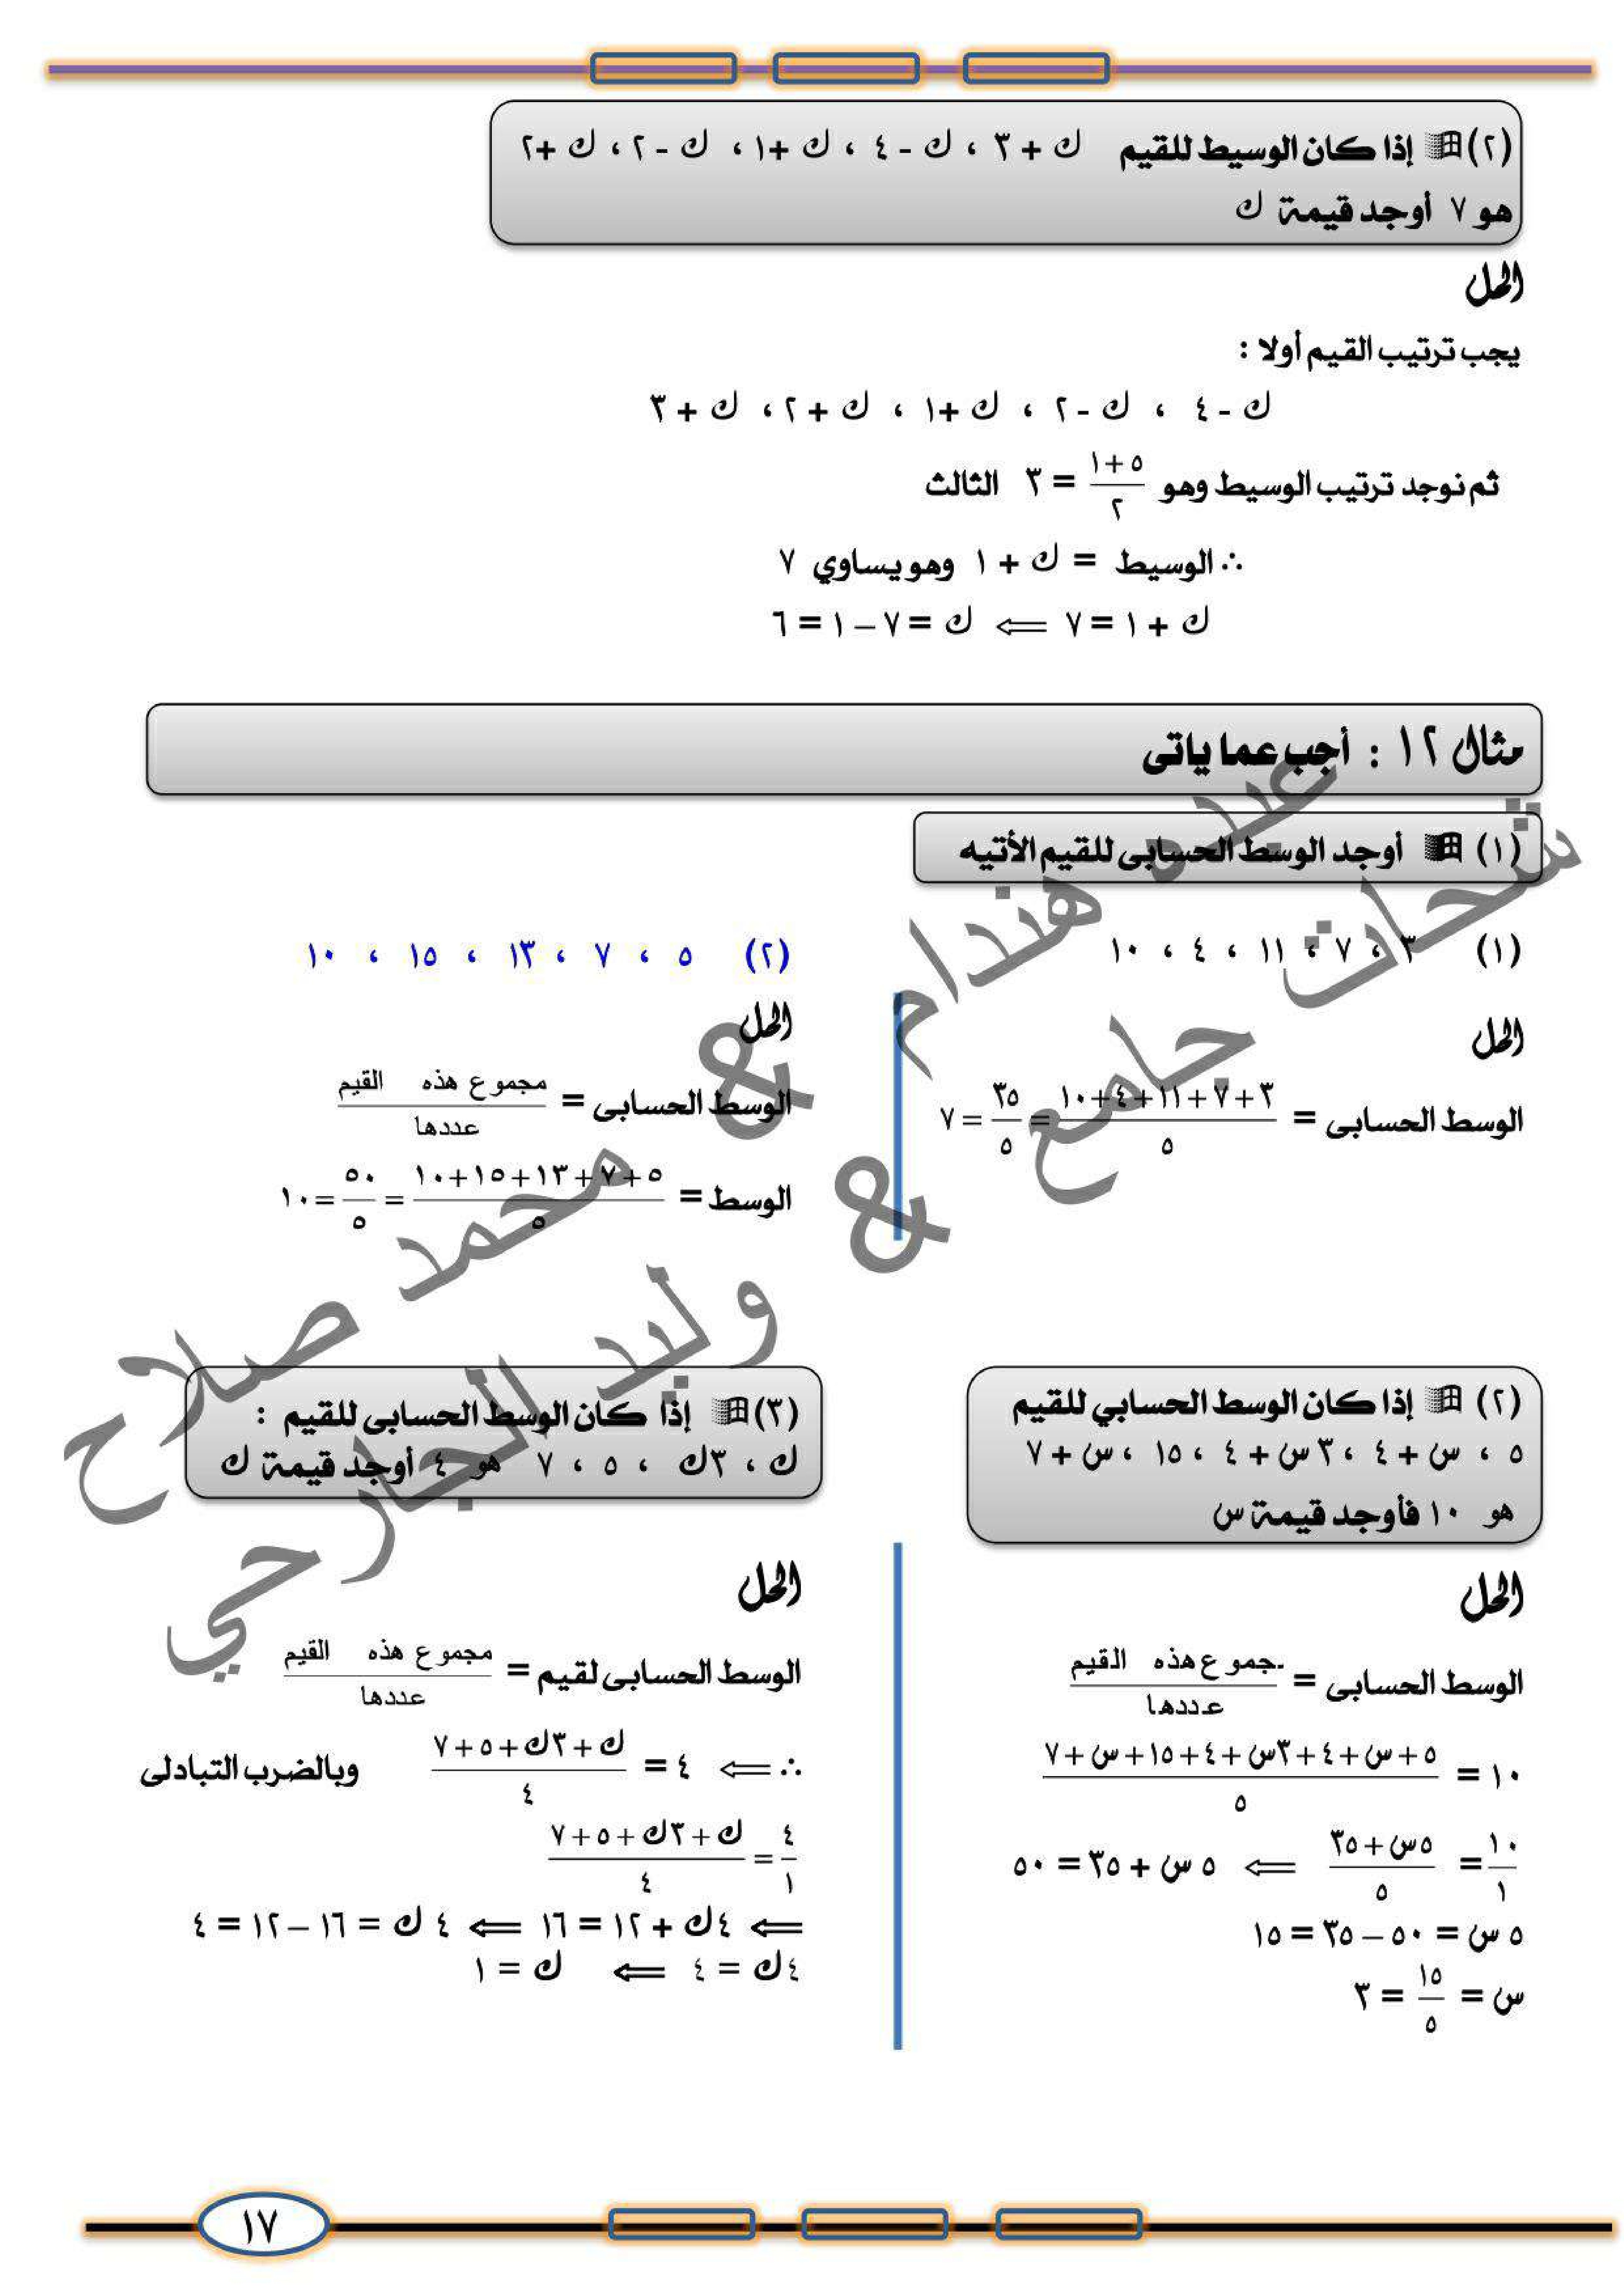 (٢) إذا كان الوسيط للقيم ك + ٣ ، ك - ٤ ، ك +١ ، ك - ٢ ، ك +٢
هو ٧ أوجد قيمة ك
الحل
يجب ترتيب القيم أولا :
ك - ٤ ، ك - ٢ ، ك +١ ، ك + ٢ ، ك + ٣
ثم نوجد ترتيب الوسيط وهو (٥ + ١)/٢ = ٣ الثالث
∴ الوسيط = ك + ١ وهو يساوي ٧
ك + ١ = ٧ ⇐ ك = ٧ – ١ = ٦
مثال ١٢ : أجب عما ياتى
(١) أوجد الوسط الحسابى للقيم الأتيه
(١) ٣ ، ٧ ، ١١ ، ٤ ، ١٠
الحل
الوسط الحسابى = (٣ + ٧ + ١١ + ٤ + ١٠)/٥ = ٣٥/٥ = ٧
(٢) ٥ ، ٧ ، ١٣ ، ١٥ ، ١٠
الحل
الوسط الحسابى = مجموع هذه القيم/عددها
الوسط = (٥ + ٧ + ١٣ + ١٥ + ١٠)/٥ = ٥٠/٥ = ١٠
(٢) إذا كان الوسط الحسابي للقيم
٥ ، س + ٤ ، ٣ س + ٤ ، ١٥ ، س + ٧
هو ١٠ فأوجد قيمة س
الحل
الوسط الحسابى = جموع هذه القيم/عددها
١٠ = (٥ + س + ٤ + ٣س + ٤ + ١٥ + س + ٧)/٥
١٠/١ = (٥س + ٣٥)/٥ ⇐ ٥ س + ٣٥ = ٥٠
٥ س = ٥٠ – ٣٥ = ١٥
س = ١٥/٥ = ٣
(٣) إذا كان الوسط الحسابى للقيم :
ك ، ٣ك ، ٥ ، ٧ هو ٤ أوجد قيمة ك
الحل
الوسط الحسابى لقيم = مجموع هذه القيم/عددها
∴ ⇐ ٤ = (ك + ٣ك + ٥ + ٧)/٤ وبالضرب التبادلى
٤/١ = (ك + ٣ك + ٥ + ٧)/٤
⇐ ٤ك + ١٢ = ١٦ ⇐ ٤ ك = ١٦ – ١٢ = ٤
٤ك = ٤ ⇐ ك = ١
عبده هندام & محمد صلاح
شحات جامع & وليد الجارحي
١٧